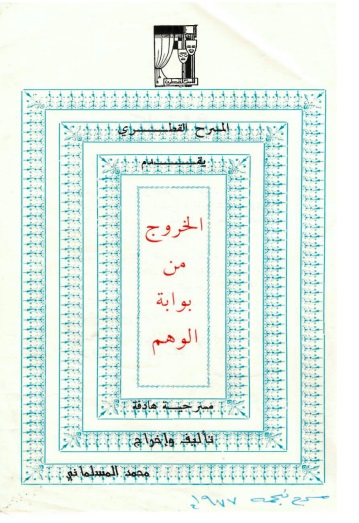 المسرح القطري
يقدم
الخروج
من
بوابة
الوهم
مسرحية هادفة
تأليف وإخراج
محمد المسلماني
مسرح نجمه ١٩٧٧